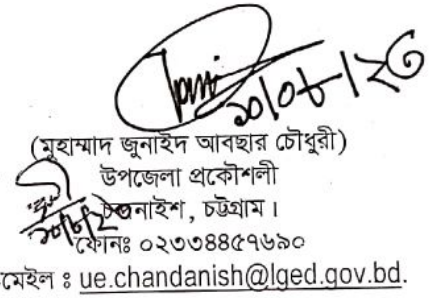 ১০/০৮/২৩
(মুহাম্মাদ জুনাইদ আবছার চৌধুরী)
উপজেলা প্রকৌশলী
চন্দনাইশ, চট্টগ্রাম।
ফোনঃ ০২৩৩৪৪৫৭৬৯০
মেইল ঃ ue.chandanish@lged.gov.bd.